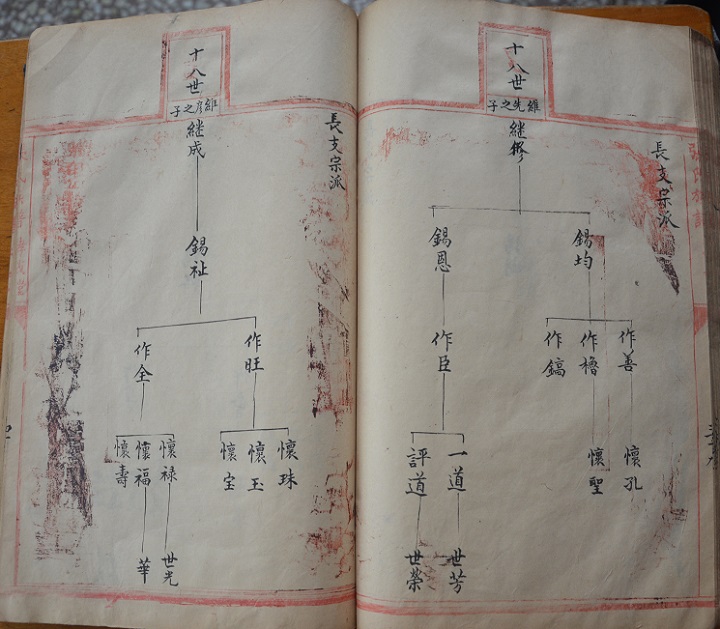 十八世
維先之子
長支宗派
継修
錫均
錫恩
作善
作櫓
作鎬
作臣
懷孔
懷聖
一道
評道
世芳
世榮
十八世
維彦之子
長支宗派
継成
錫祉
作旺
作全
懷珠
懷玉
懷宝
懷禄
懷福
懷壽
世光
華